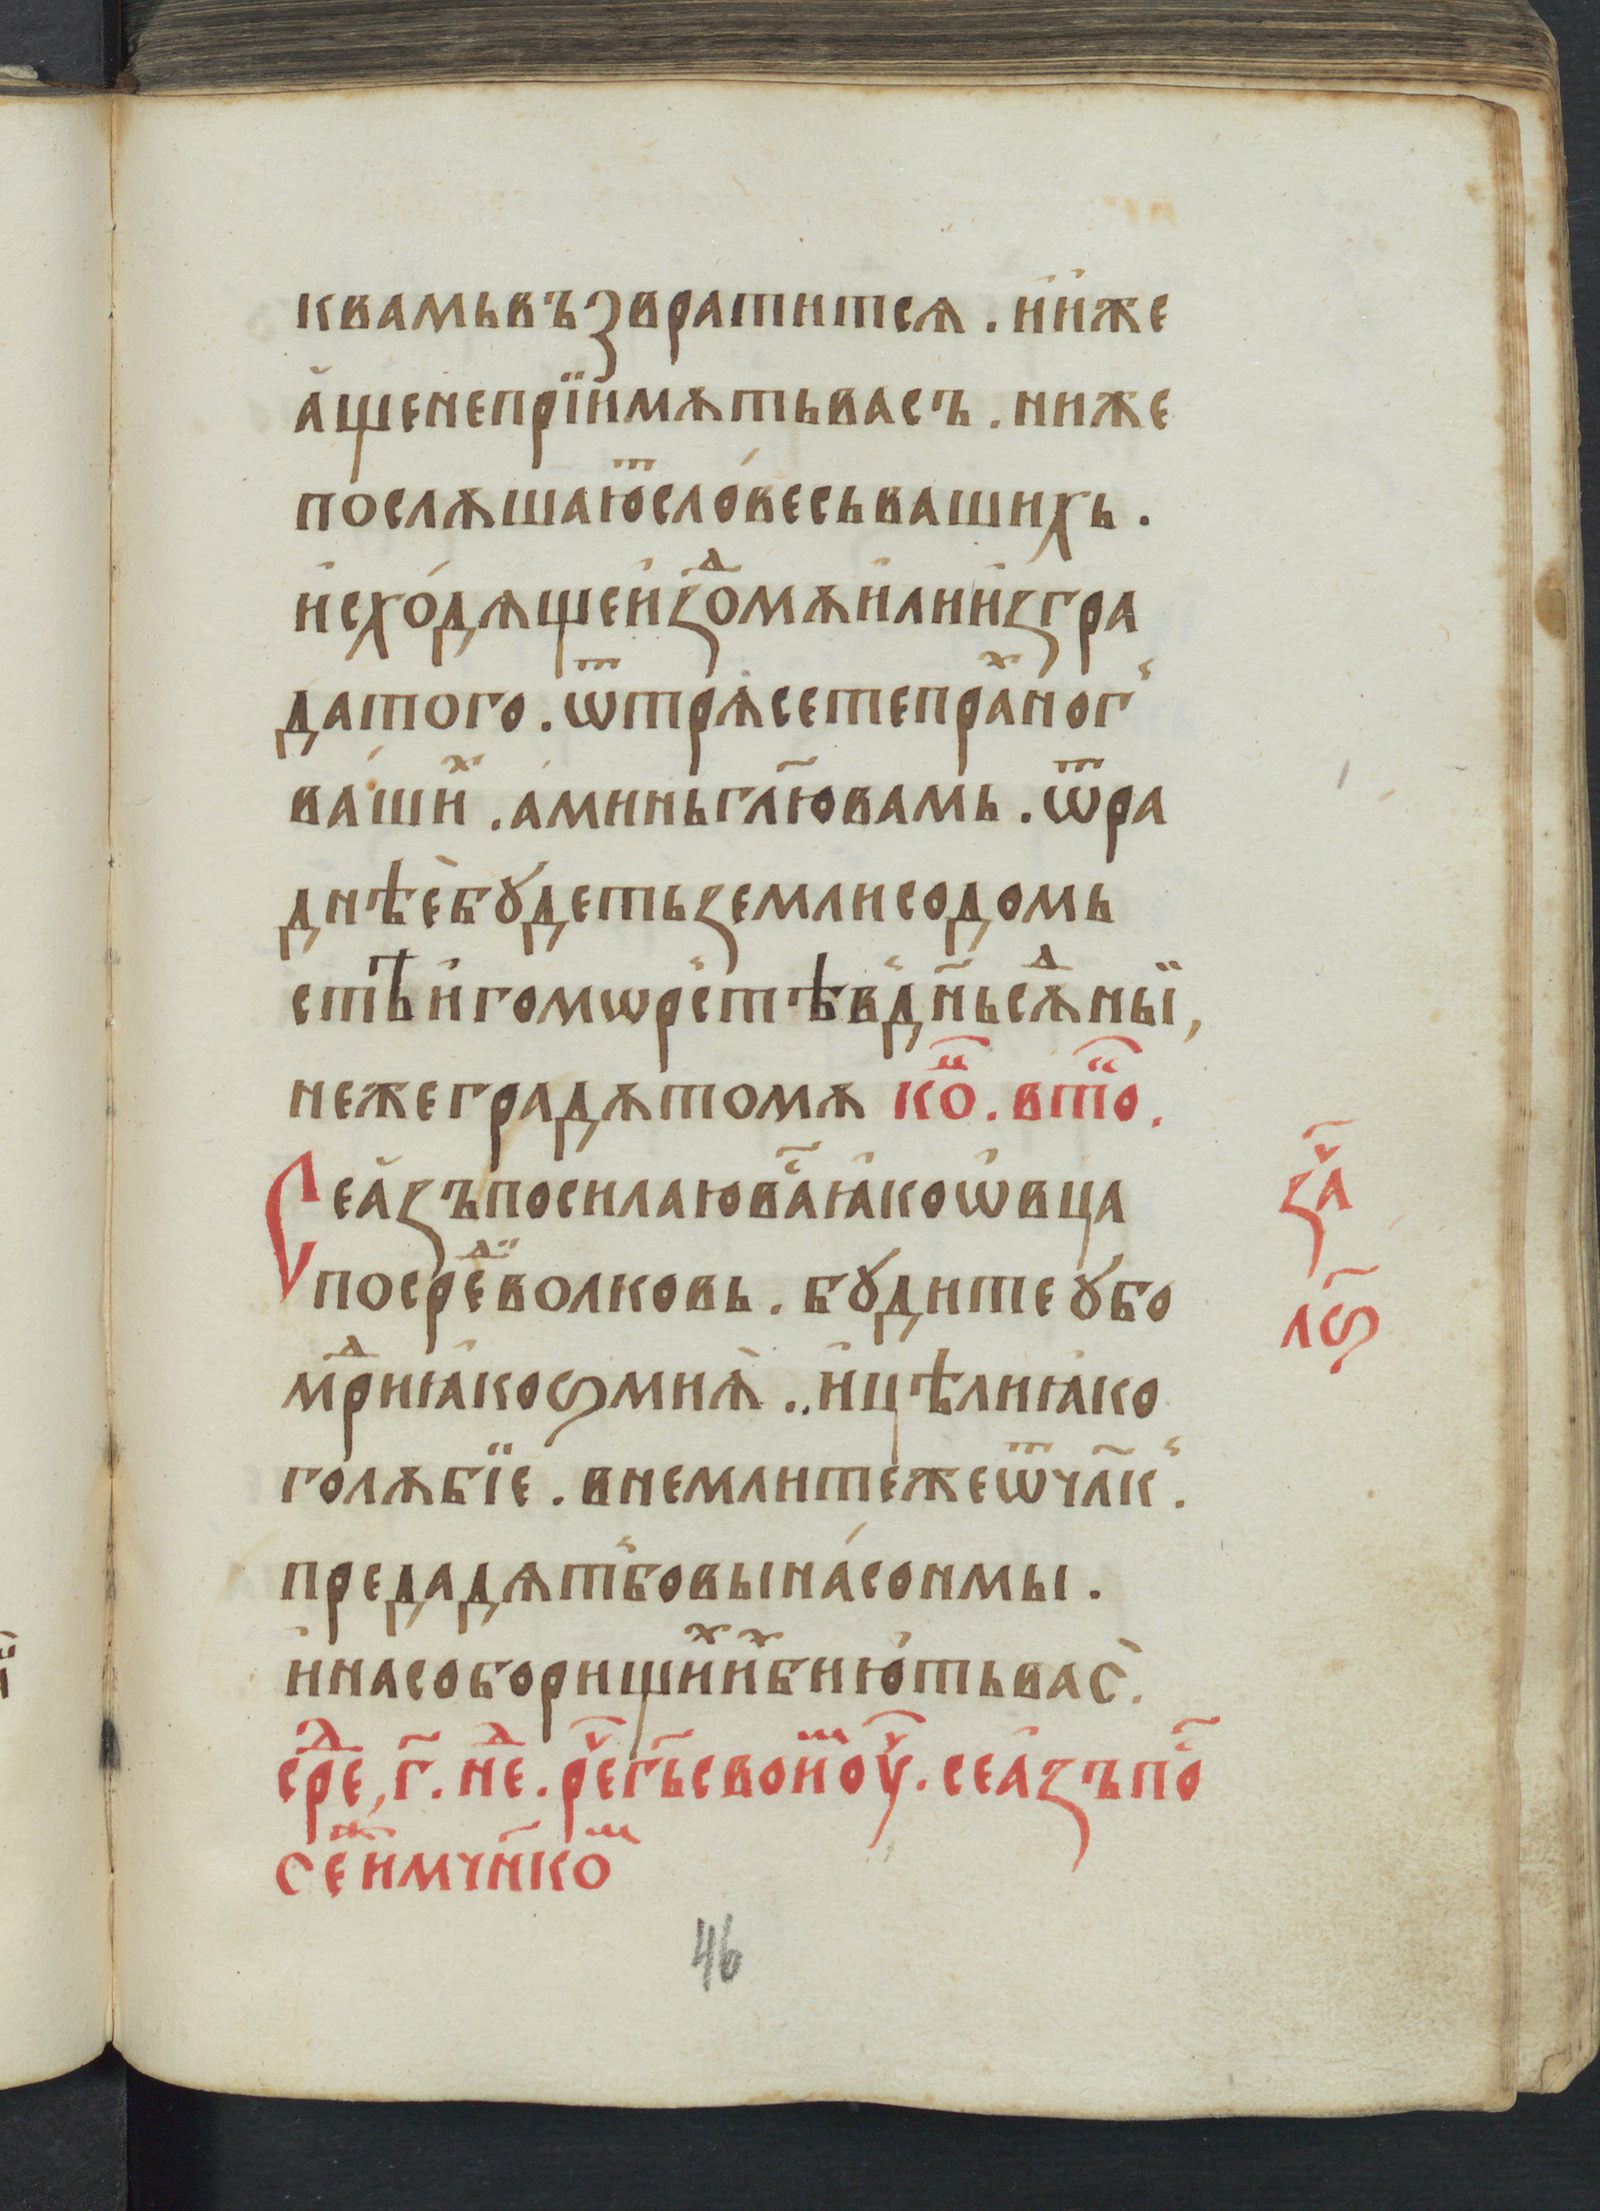 к вамь възвратится . и иже
а҆ще не прїимѫть васъ . ниже
послѫшаюⷮ слове́сь вашихь .
и҆схо́дѧще и҆ꙁоⷣмѫ и҆ли и҆ꙁ гра
да того . ѿтрѧсете праⷯ ног꙽
ва́шиⷯ . а҆минь гл҃ю вамь . ѿра
днѣе бꙋдеть ꙁемли содомь
стѣи и҆ гомѡрстѣ в꙽ дн҃ь сѫⷣныї,
неже градѫ томѫ коⷰ҇ . втоⷬ҇ .
Се а҆ꙁъ посилаю ваⷭ҇ ꙗ҆ко ѡвца
посреⷣѣ волковь . бꙋдите ꙋбо
мⷣри ꙗ҆ко ѕмиѧ .. и҆ цѣли ꙗ҆ко
голѫбїе . внемлите же ѿ чл҃к꙽ .
предадѧт꙽ бо вы на́ сонмы .
и҆ на собориⷳщиⷯ иⷯ бию҆ть вас .
среⷣ, г҃ . неⷣ . реⷱ҇ гь҃ своиⷨ оуⷱ҇ . се а҆ꙁъ поⷭ҇
сеⷤ и҆ мч҃нкоⷨ
ꙁаⷱ҇
лѕ҃
46